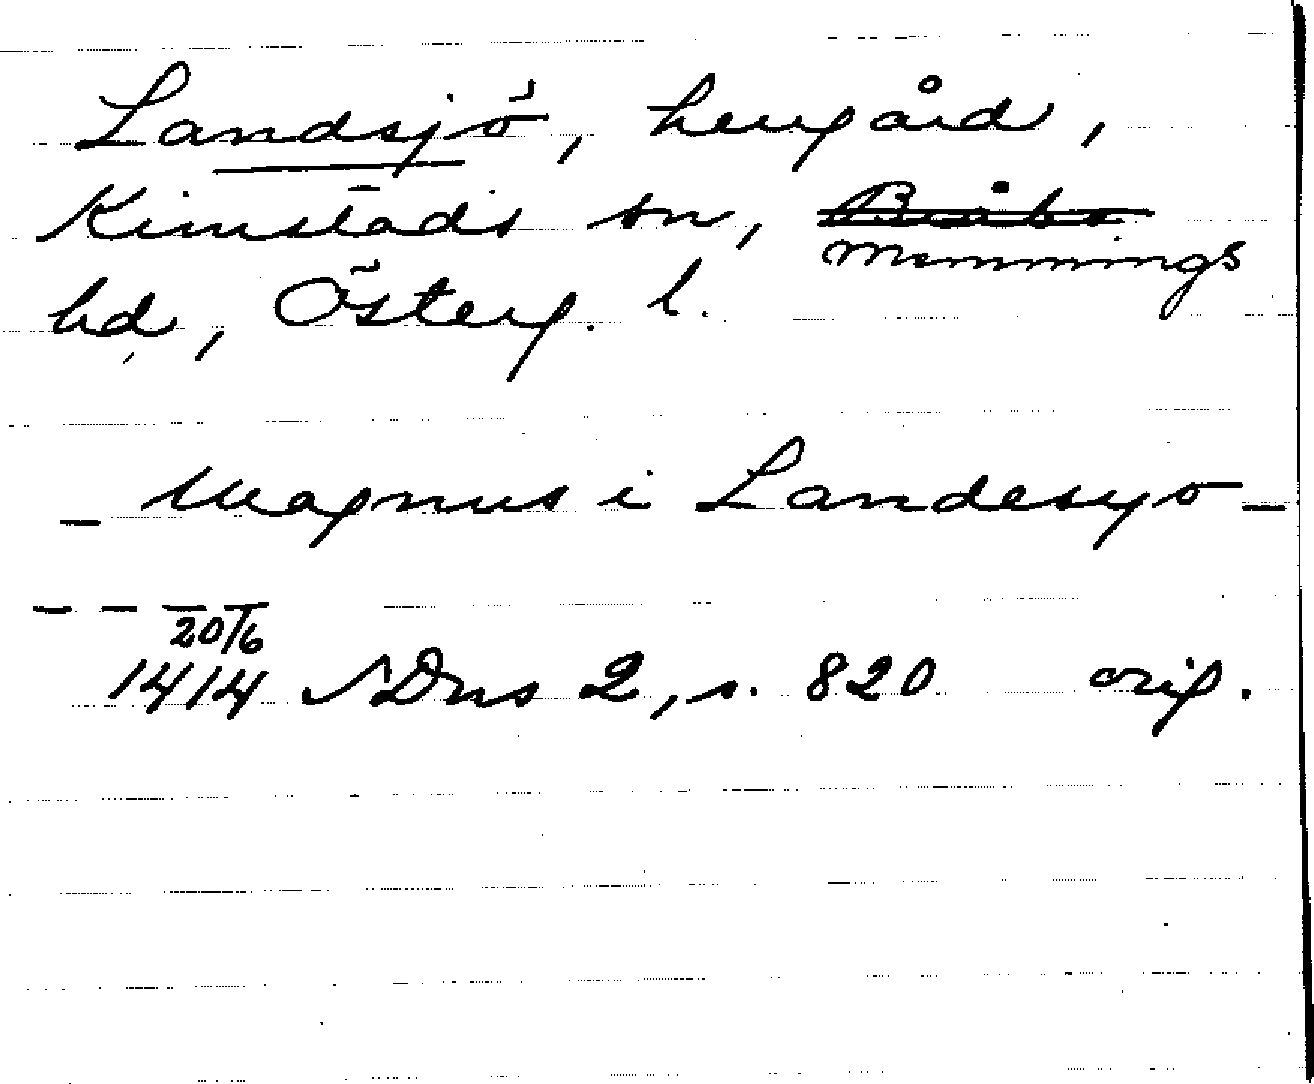 Landsjö, herrgård,
Kimstads sn, Bråbo
Memmings
hd, Österg. l.
– Magnus i Landesyo –
– – –
20/6
1414 SDns 2, s. 820 orig.